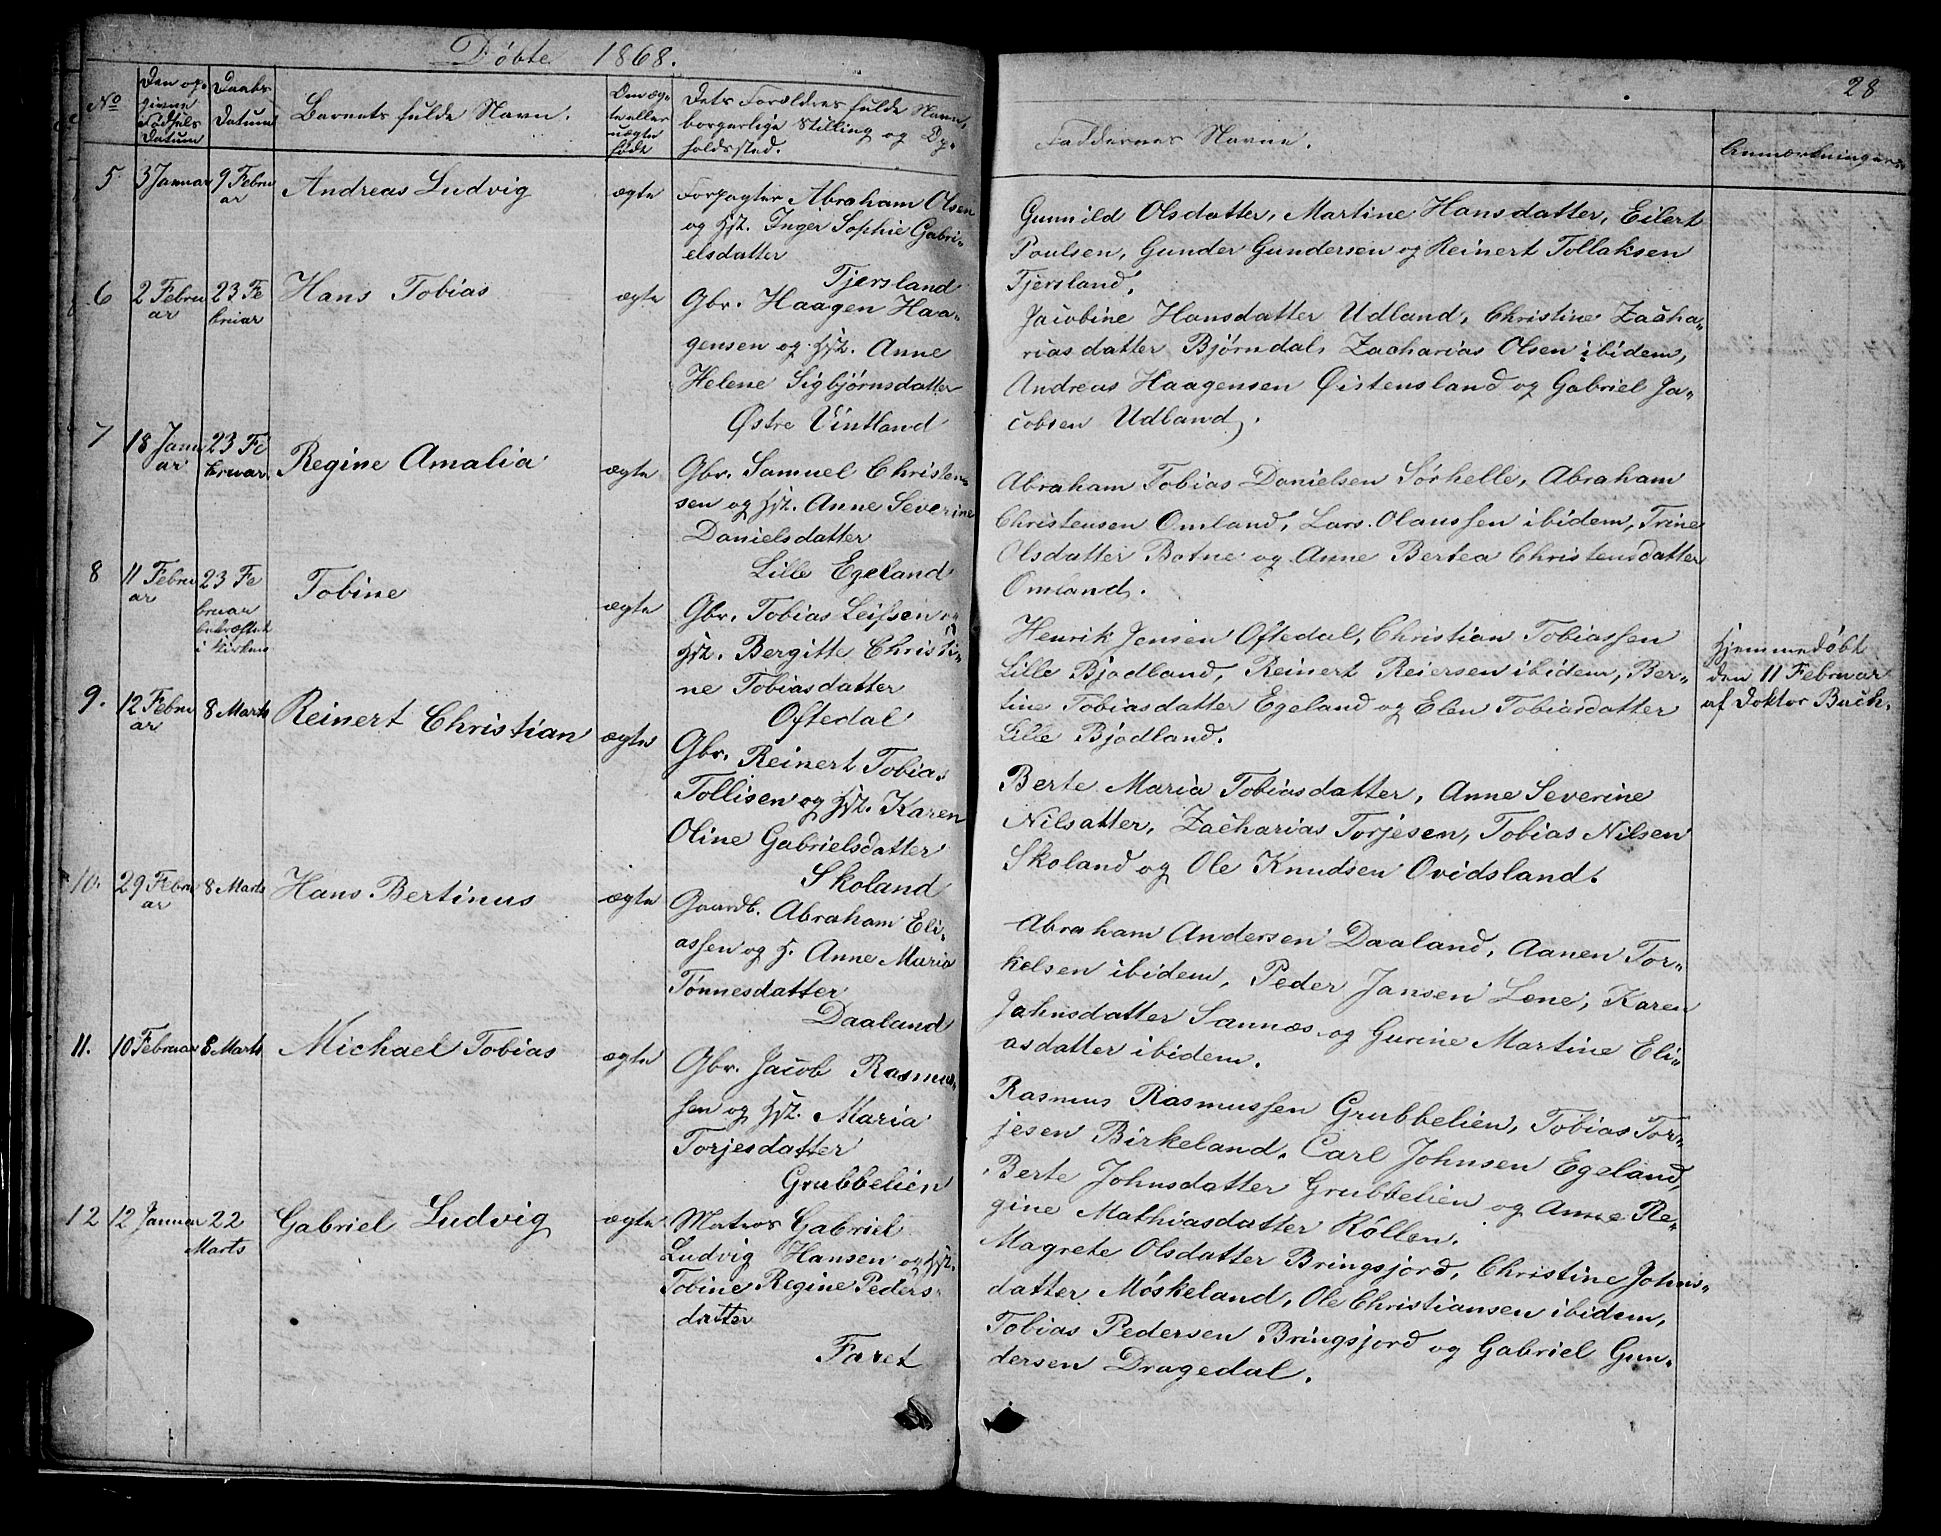 Døbte 1868.
28
No
Den op-
givne
Fødsels
Datum
Daabs
Datum
Barnets fulde Navn.
Om æg-
te eller
uægte
født
Dets Forældres fulde Navn,
borgerlige Stilling og Op-
holdssted.
Faddernes Navne.
Anmærkninger
5
3 Januar
9 Febru
ar
Andreas Ludvig
ægte
Forpagter Abraham Olsen
og Hst. Inger Sophie Gabri-
elsdatter
Tjersland
Gunnild Olsdatter, Martine Hansdatter, Eilert
Poulsen, Gunder Gundersen og Reinert Tollaksen
Tjersland.
6
2 Febru
ar
23 Fe
bruar
Hans Tobias
ægte
Gbr. Haagen Haa-
gensen og Hst. Anne
Helene Sigbjørnsdatter
Østre Vintland
Jacobine Hansdatter Udland, Christine Zacha-
riasdatter Bjørndal, Zacharias Olsen ibidem,
Andreas Haagensen Øistensland og Gabriel Ja-
cobsen Udland.
7
18 Janu
ar
23 Fe
bruar.
Regine Amalia
ægte
Gbr. Samuel Christen-
sen og Hst. Anne Severine
Danielsdatter
Lille Egeland
Abraham Tobias Danielsen Sørhelle, Abraham
Christensen Omland, Lars Olaussen ibidem, Trine
Olsdatter Botne og Anne Bertea Christensdatter
Omland.
8
11 Febru
ar
23 Fe
bruar
bekræftet
i Kirken
Tobine
ægte
Gbr. Tobias Leifsen og
Hst. Bergitte Christi-
ne Tobiasdatter
Oftedal
Henrik Jensen Oftedal, Christian Tobiassen
Lille Bjodland, Reinert Reiersen ibidem, Ber-
tine Tobiasdatter Egeland og Elen Tobiasdatter
Lille Bjodland.
Hjemmedøbt
den 11 Februar
af Doktor Buch.
9.
12 Febru
ar
8 Marts
Reinert Christian
ægte
Gbr. Reinert Tobias
Tollisen og Hst. Karen
Oline Gabrielsdatter
Skoland
Berte Maria Tobiasdatter, Anne Severine
Nilsatter, Zacharias Torjesen, Tobias Nilsen
Skoland og Ole Knudsen Ovidsland.
10.
29 Febru
ar
8 Marts
Hans Bertinus
ægte
Gaardb. Abraham Eli-
assen og H. Anne Maria
Tønnesdatter
Daaland
Abraham Andersen Daaland, Aanen Tor-
kelsen ibidem, Peder Jansen Lene, Karen
Jahnsdatter Sannæs og Gurine Martine Eli-
asdatter ibidem.
11.
10 Februar
8 Marts
Michael Tobias
ægte
Gbr. Jacob Rasmus-
sen og Hst. Maria
Torjesdatter
Grubbelien
Rasmus Rasmussen Grubbelien, Tobias Tor-
jesen Birkeland, Carl Johnsen Egeland,
Berte Johnsdatter Grubbelien og Anne Re-
gine Mathiasdatter Røllen.
12
12 Januar
22
Marts
Gabriel Ludvig
ægte
Matros Gabriel
Ludvig Hansen og Hst.
Tobine Regine Peders-
datter
Faret
Magrete Olsdatter Bringsjord, Christine Johns-
datter Møskeland, Ole Christiansen ibidem,
Tobias Pedersen Bringsjord og Gabriel Gun-
dersen Dragedal.